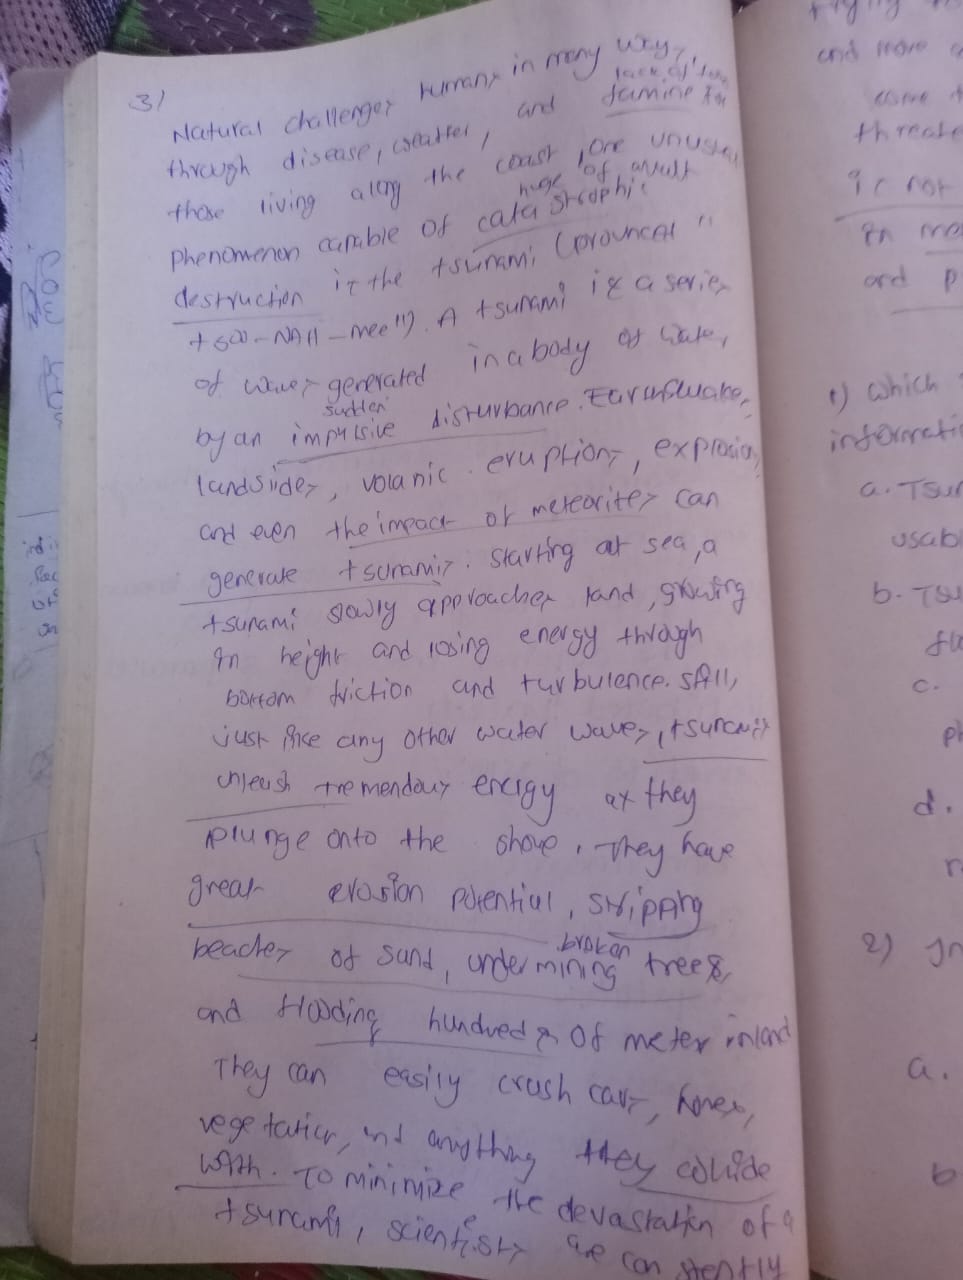 3)
Natural challenges humans in many ways,
lack of
through disease, weather, and famine For
those living along the coast, one unusual
huge of amult
phenomenon capable of catastrophic
destruction is the tsunami (prounced "
tsoo-NAH-mee"). A tsunami is a series
of waves generated in a body of water,
sudden
by an impulsive disturbance. Earthquake,
landsides, volanic eruptions, explosion,
and even the impact of meteorites can
generate tsunamis. starting at sea, a
tsunami slowly approaches land, growing
in height and losing energy through
bottom friction and turbulence. still,
just like any other water waves, tsunamis
unleash tremendous energy as they
plunge onto the shore. They have
great erosion potential, stripping
beaches of sand, undermining trees,
broken
and flooding hundreds of meter inland
They can easily crush cars, homes,
vegetation, and anything they collide
with. To minimize the devastation of a
tsunami, scientists are constently
and more
come
threate
is not
in mo
and p
1) Which
informati
a. Tsun
usabl
b. Tsu
flo
c.
ph
d.
r
2) In
a.
b